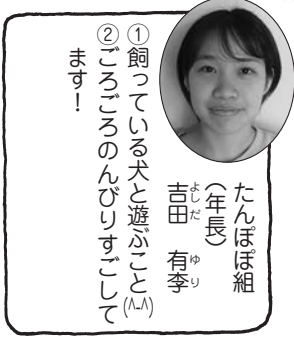 たんぽぽ組
（年長）
吉田　有李
よしだ　ゆり
①飼っている犬と遊ぶこと(^-^)
②ごろごろのんびりすごして
ます！